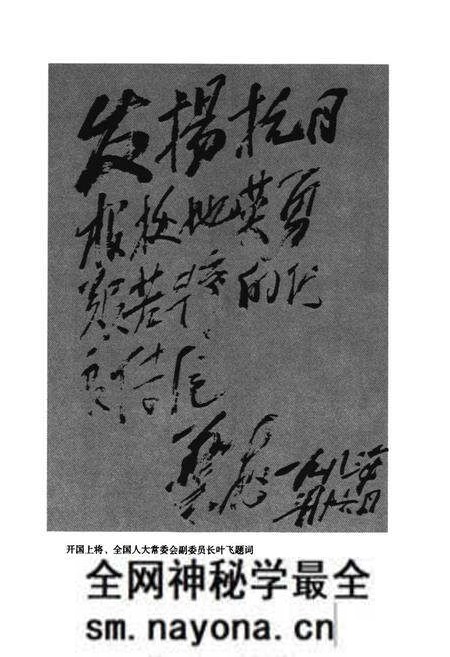 发揚抗日
根据地英勇
艱苦斗争的优
良传统
葉飞 一九八
月十六日
开国上将、全国人大常委会副委员长叶飞题词
全网神秘学最全
sm.nayona.cn